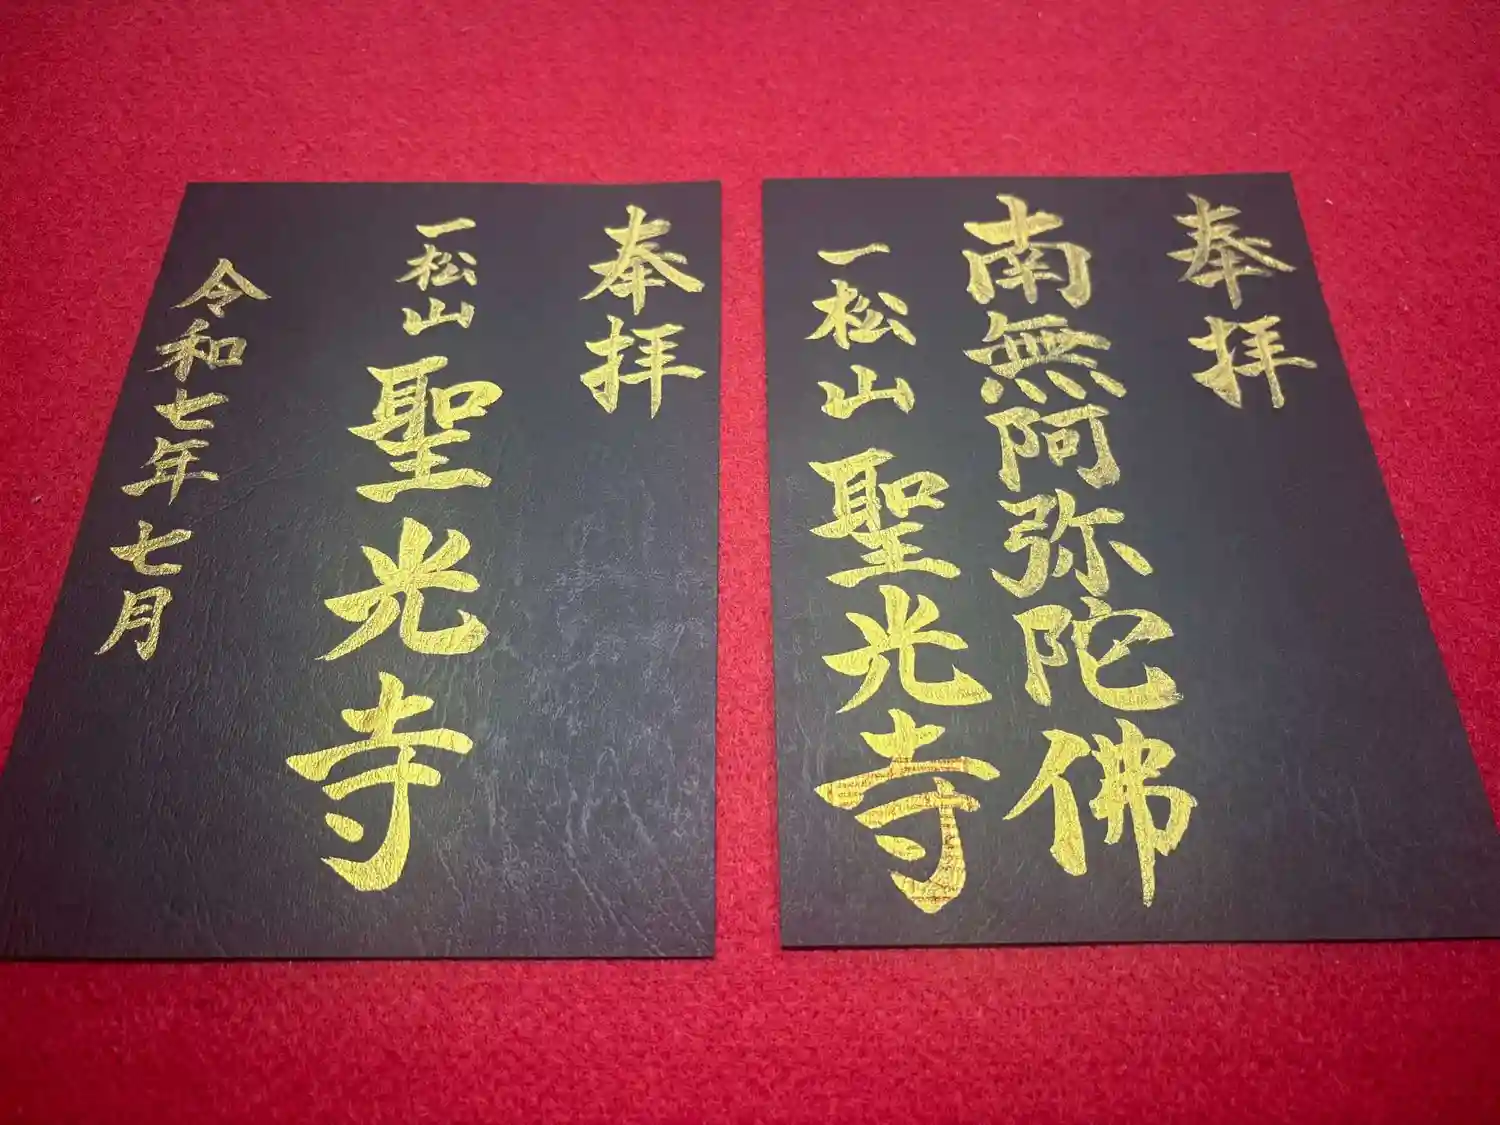 奉拝
南無阿弥陀佛
一松山聖光寺
奉拝
一松山聖光寺
令和七年七月